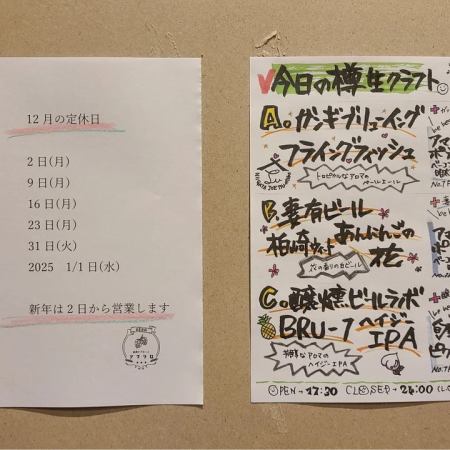 12月の定休日
2日(月)
9日(月)
16日(月)
23日(月)
31日(火)
2025 1/1日(水)
新年は2日から営業します
今日の樽生クラフト
A. ガンギブリューイング
フライングフィッシュ
トロピカルなアロマの
ペールエール
B. 妻有ビール
柏崎ウィート あんにんごの
花
花の香りの白ビール
C. 醸燻ビールラボ
BRU-1 ヘイジー
IPA
ヘイジーIPA
OPEN→17:30 CLOSED→24:00